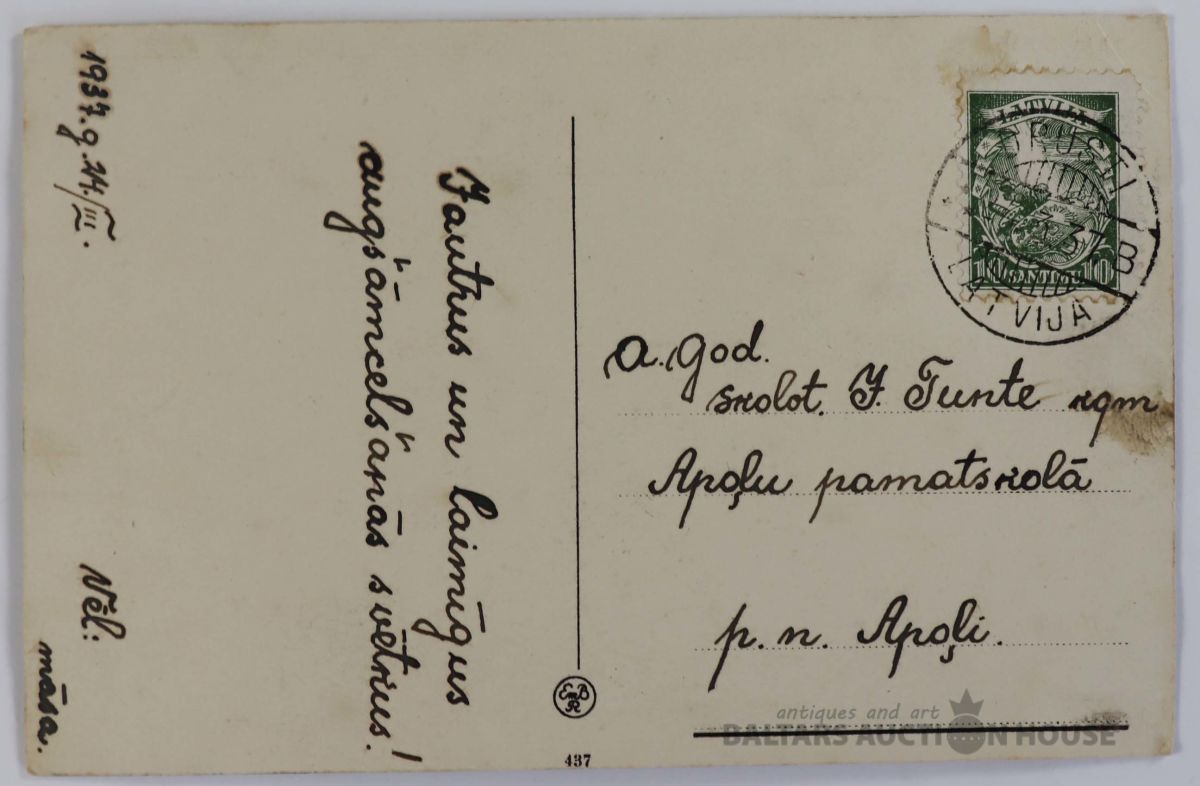 Jautrus un laimīgus
augšāmcelšanās svētkus!
Vēl:
māsa.
1937.g.24./III.
LATVIJA
10 SANTIMU 10
B
LATVIJA
A. God.
skolot. J. Tunte kgm
Apoļu pamatskolā
p. n. Apoļi.
EBR
437
antiques and art
BALTARS AUCTION HOUSE